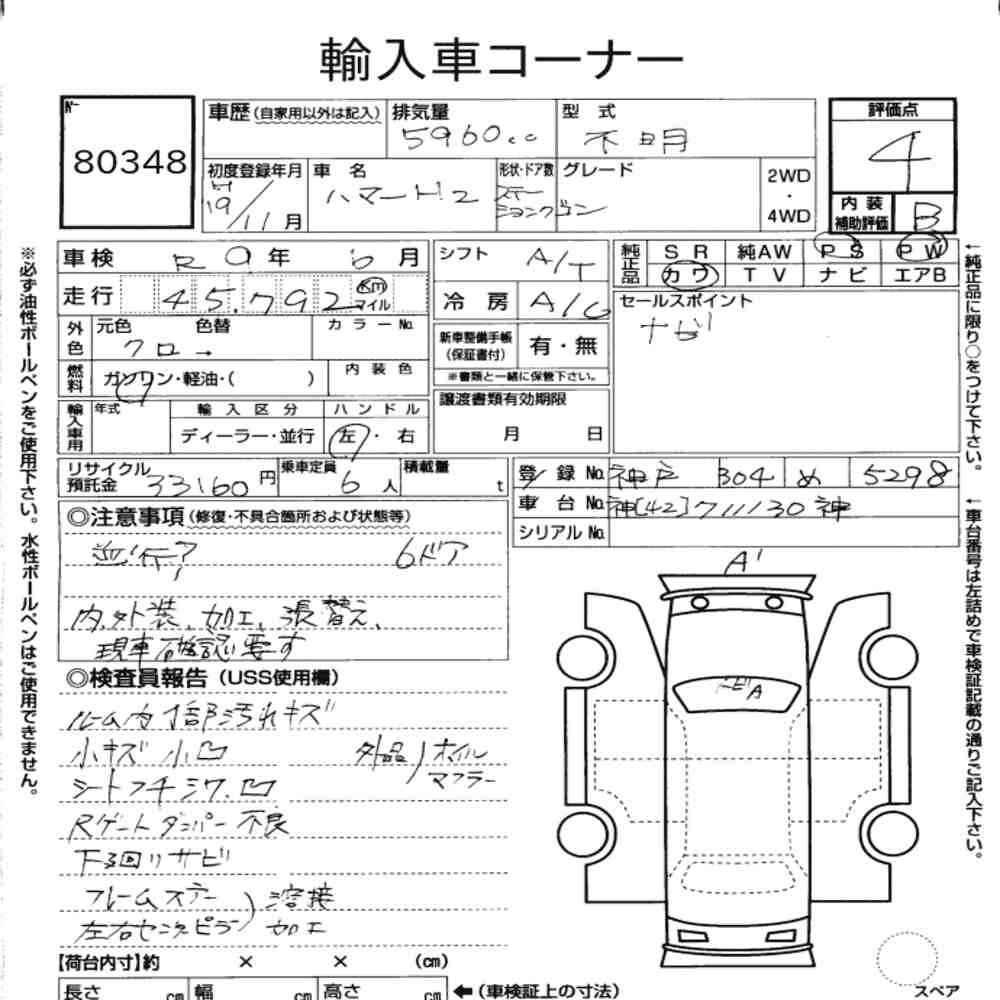 輸入車コーナー
No.
80348
車歴 (自家用以外は記入)
排気量
5960cc
型式
不明
評価点
4
初度登録年月
H19/11月
車名
ハマーH2
形状・ドア数
ステーションワゴン
グレード
2WD
・
4WD
内装補助評価
B
車検 R9年6月
走行 45,792 Km マイル
外色
元色 色替
クロ→
カラーNo.
燃料
ガソリン・軽油・( )
内装色
輸入車用
年式
輸入区分
ディーラー・並行
ハンドル
左・右
シフト A/T
冷房 A/C
新車整備手帳(保証書付)
有・無
※書類と一緒に保管下さい。
譲渡書類有効期限
月 日
純正品
SR 純AW PS PW
カワ TV ナビ エアB
セールスポイント
ナビ
リサイクル預託金 33160円
乗車定員 6人
積載量 t
登録No. 神戸 304 め 5298
車台No. 神[42]711130神
シリアルNo.
◎注意事項(修復・不具合箇所および状態等)
並行? 6ドア
内.外装、加工、張替え、
現車確認要す
◎検査員報告(USS使用欄)
ルーム内1部汚れキズ
小キズ 小凹
外品)オイル
マフラー
シートフチシワ.凹
Rゲートダンパー不良
下回りサビ
フレームステー
左右センターピラー)溶接
加工
A'
トビA
【荷台内寸】約 × × (cm)
長さ cm 幅 cm 高さ cm ←(車検証上の寸法)
スペア
※必ず油性ボールペンをご使用下さい。水性ボールペンはご使用できません。
←純正品に限り○をつけて下さい。
←車台番号は左詰めで車検証記載の通りご記入下さい。